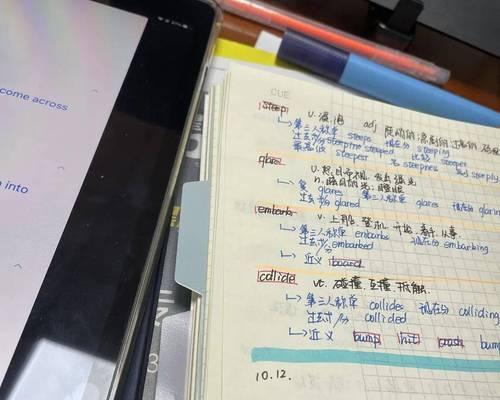 come across
into
CUE
steep v. 浸泡 adj 陡峭的,急剧的,过高的
第三人称单 steeps 现在分 steeping
过去式/分 steeped 比较 steeper
最高级 steepest 名 steepness 副 steeply
glare v. 怒目而视,发出强光
n. 瞪眼
第三人称单 glares 现在分 glaring
过去式/分 glared
embark v. 上船,登机,开始,着手,从事
第三人称单 embarks 现在分 embarking
过去式/分 embarked
近义 board
collide vt. 碰撞,互撞,抵触
第三人称单 collides 现在分 colliding
过去式/分 collided
近义 bump hit crash bum
10.12.
3